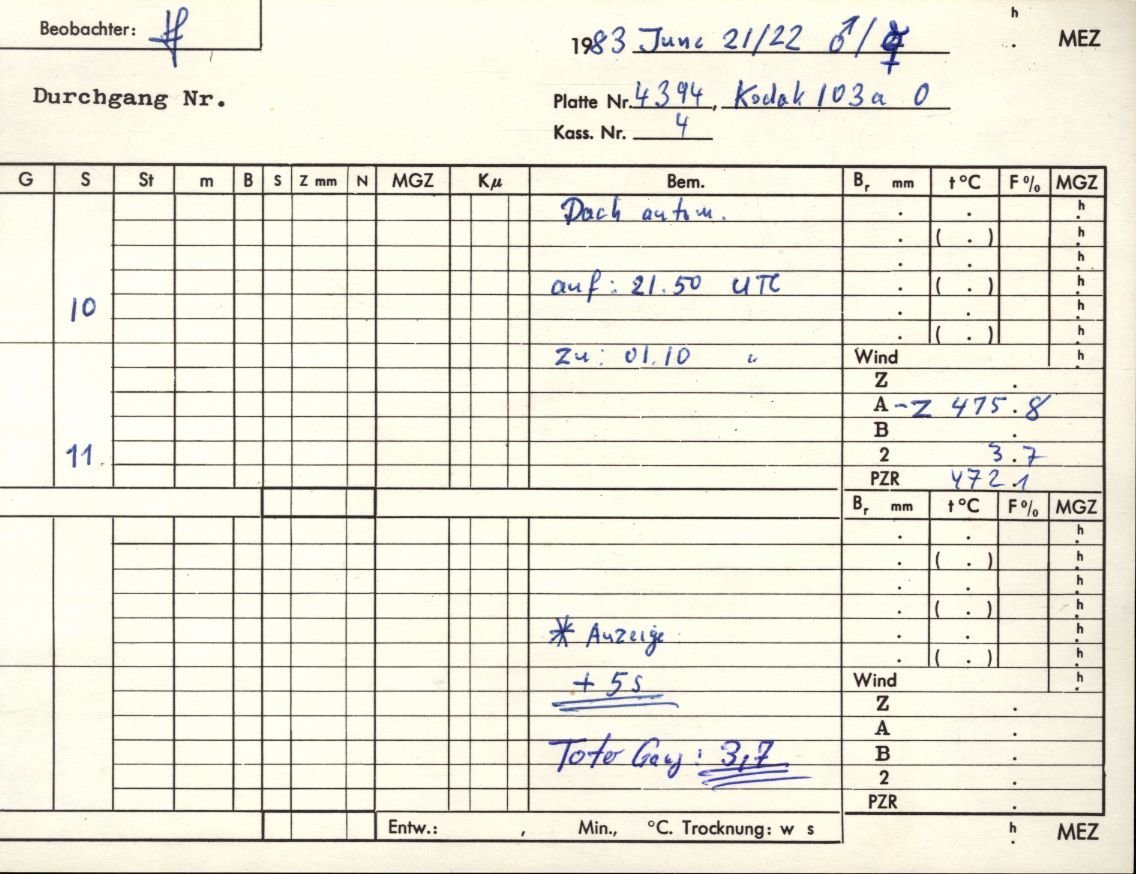 Beobachter:
h
1983 June 21/22 ♂/☿ . MEZ
Durchgang Nr.
Platte Nr. 4394, Kodak 103a O
Kass. Nr. 4
G S St m B S Z mm N MGZ Kμ Bem. Br mm t °C F % MGZ
Dach autom. . . h
. ( . ) h
. . h
auf: 21.50 UTC . ( . ) h
10 . . h
. ( . ) h
zu: 01.10 " Wind h
Z .
A -Z 475.8
B .
11 2 3.7
PZR 472.1
Br mm t °C F % MGZ
. . h
. ( . ) h
. . h
. ( . ) h
* Anzeige . . h
. ( . ) h
+ 5s Wind h
Z .
A .
Toter Gang: 3,7 B .
2 .
PZR .
Entw.: , Min., °C. Trocknung: w s h . MEZ